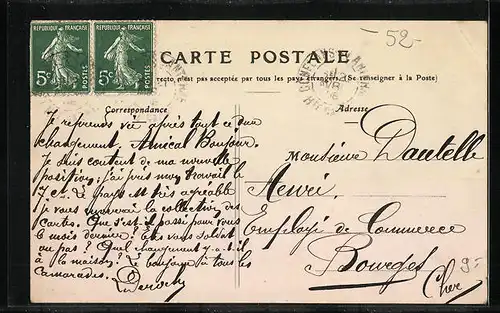 52-
REPUBLIQUE FRANÇAISE REPUBLIQUE FRANÇAISE
5c 5c
POSTES POSTES
CARTE POSTALE
recto n'est pas acceptée par tous les pays étrangers. (Se renseigner à la Poste)
Correspondance
Je reprends vie après tout ce
changement. Amical Bonjour.
Je suis content de ma nouvelle
position, j'ai pris mon travail le
7 ct. Le pays est très agréable
je vous enverrai la collection des
cartes. Que s'est-il passé pour vous
6 mois dernier? Êtes vous soldat
ou pas? Quel changement y-a-t-il
à la maison? Le bonjour à tous les
camarades.
Adresse
Monsieur Dautelle
Henri
Employé de Commerce
Bourges
Cher
9.-